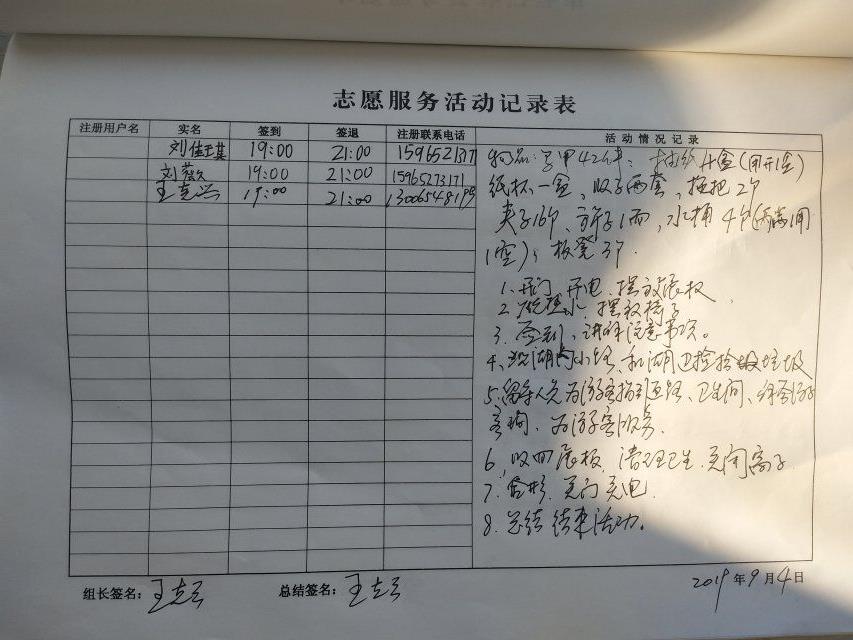 志愿服务活动记录表
注册用户名 实名 签到 签退 注册联系电话 活动情况记录
刘佳琪 19:00 21:00 1596527371
刘 19:00 21:00 15965273171
王克兴 19:00 21:00 13006548189
物品:马甲42件,抽纸4盒(用开1盒)
纸杯一盒、收子两套、拖把2个
夹子16个、旗子1面,水桶4个(
1空);板凳3个.
1、开门、开电、摆放展板
2、水、摆放椅子
3、签到、讲解注意事项。
4、沿湖内小路、和湖边捡拾垃圾
5、留守人员为游客指引道路、卫生间、解答游客
客询、为游客服务.
6、收回展板、清理卫生、关闭离子
7、合影、关门关电
8、总结结束活动.
组长签名: 王克兴 总结签名: 王克兴 2019年9月4日